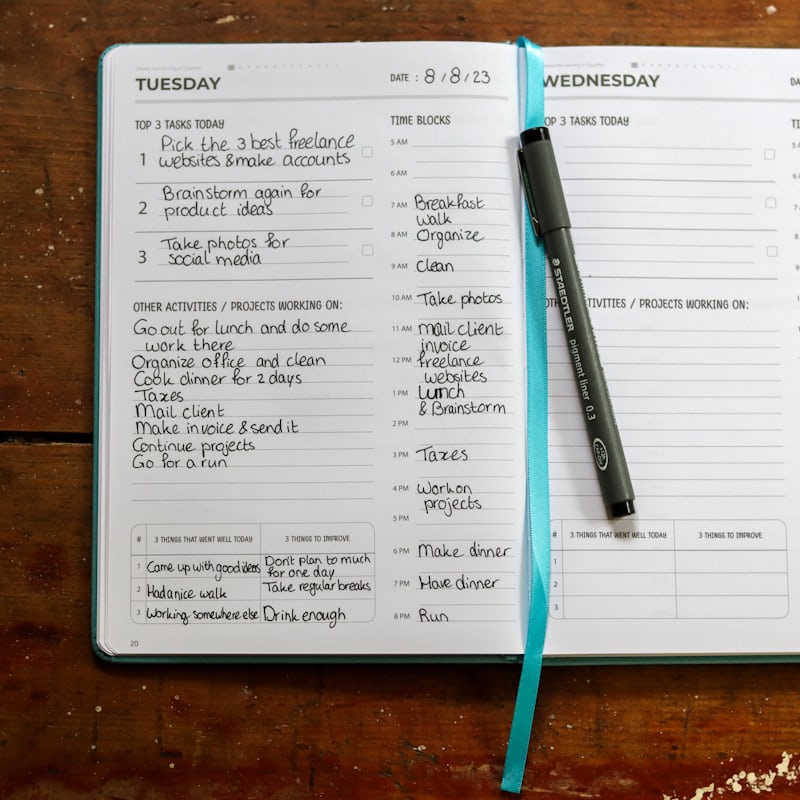 TUESDAY
DATE : 8/8/23
TOP 3 TASKS TODAY
1 Pick the 3 best freelance
websites & make accounts
2 Brainstorm again for
product ideas
3 Take photos for
social media
OTHER ACTIVITIES / PROJECTS WORKING ON:
Go out for lunch and do some
work there
Organize office and clean
Cook dinner for 2 days
Taxes
Mail client
Make invoice & send it
Continue projects
Go for a run
# 3 THINGS THAT WENT WELL TODAY 3 THINGS TO IMPROVE
1 Came up with good ideas Don't plan to much
for one day
2 Had a nice walk Take regular breaks
3 Working somewhere else Drink enough
20
TIME BLOCKS
5 AM
6 AM
7 AM Breakfast
walk
8 AM Organize
9 AM Clean
10 AM Take photos
11 AM mail client
invoice
12 PM freelance
websites
1 PM Lunch
& Brainstorm
2 PM
3 PM Taxes
4 PM Work on
projects
5 PM
6 PM Make dinner
7 PM Have dinner
8 PM Run
STAEDTLER pigment liner 0.3
WEDNESDAY
DA
OP 3 TASKS TODAY
TI
OTH TIVITIES / PROJECTS WORKING ON:
# 3 THINGS THAT WENT WELL TODAY 3 THINGS TO IMPROVE
1
2
3